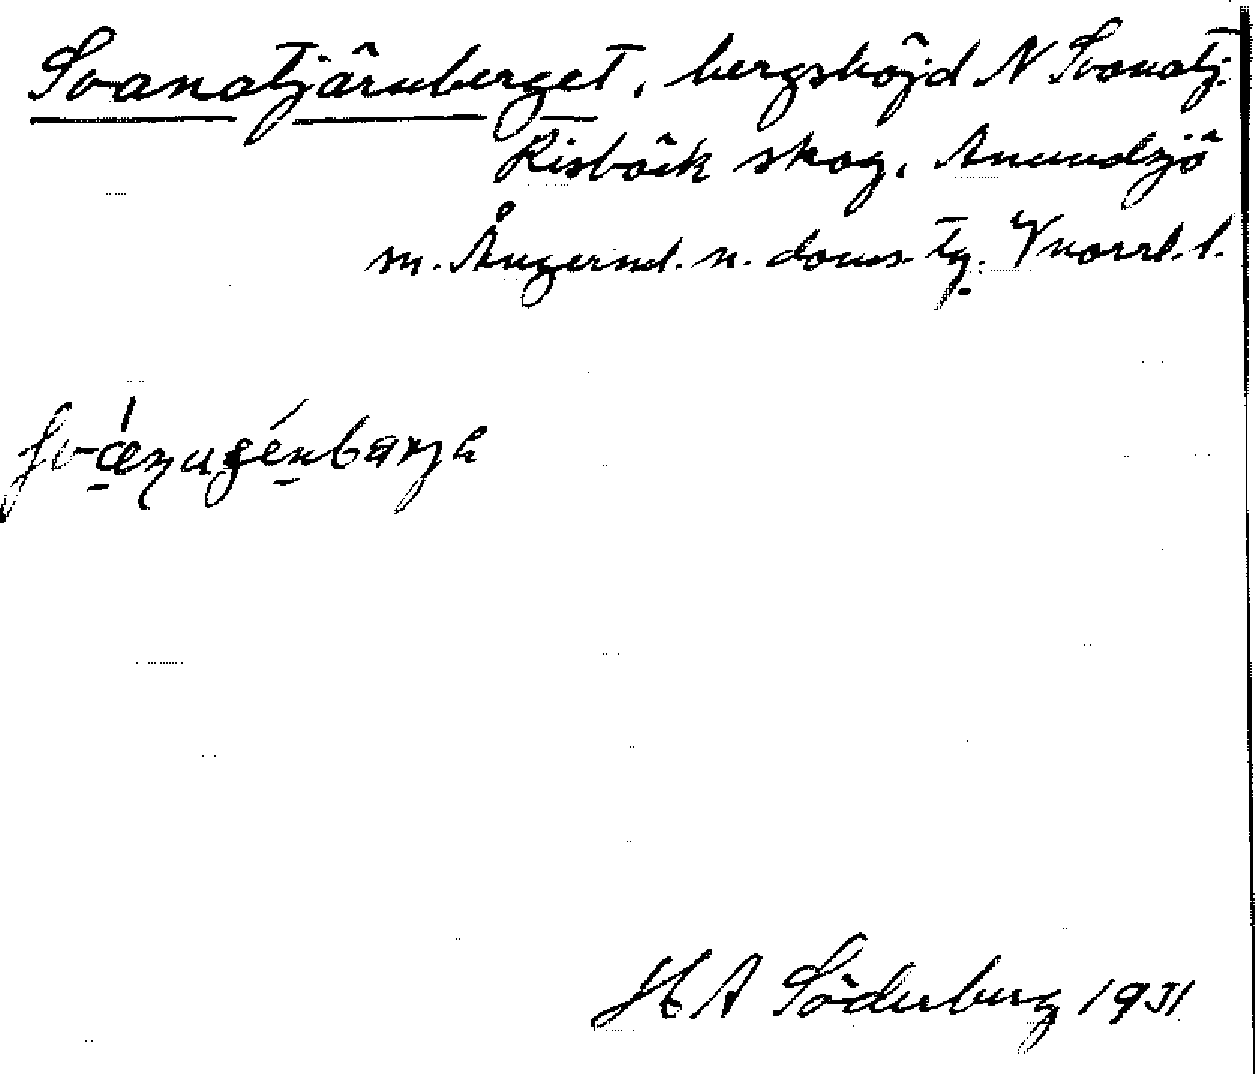 Svanatjärnberget, bergshöjd N Svanatj.
Risbäck skog, Anundsjö
m. Ångerml. n. doms. tg. Vnorrl. l.
H A Söderberg 1931